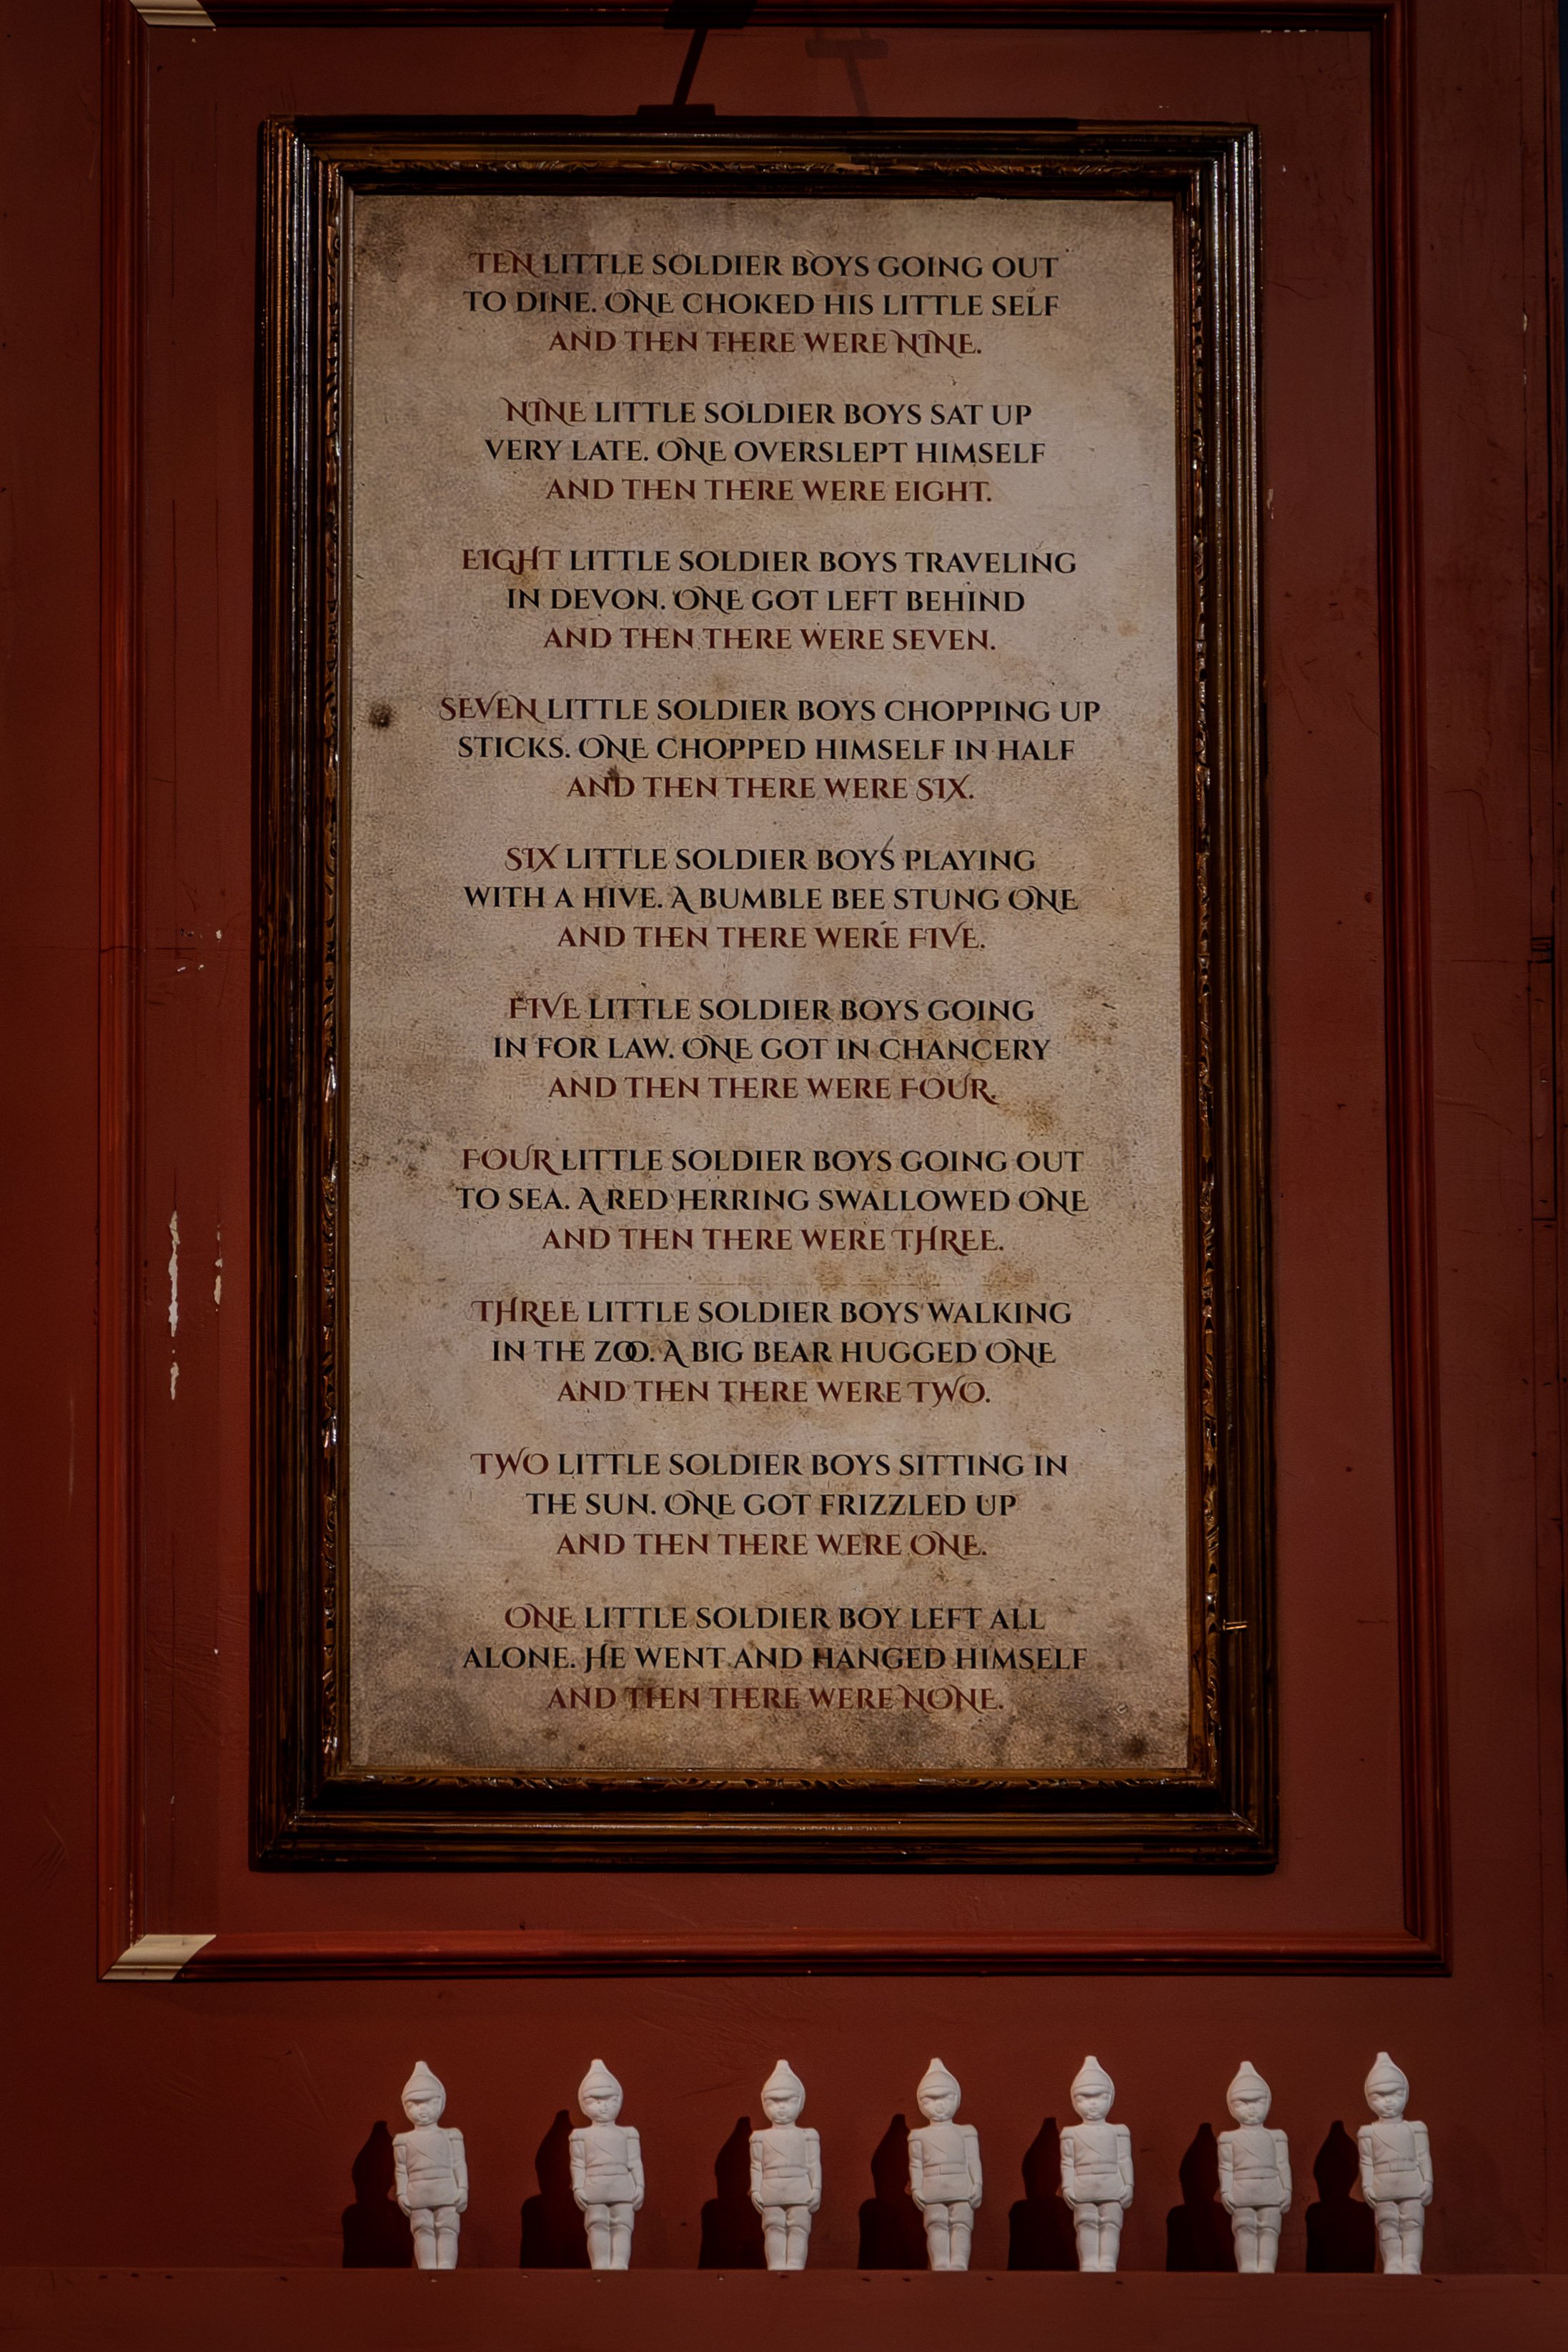 TEN LITTLE SOLDIER BOYS GOING OUT
TO DINE. ONE CHOKED HIS LITTLE SELF
AND THEN THERE WERE NINE.
NINE LITTLE SOLDIER BOYS SAT UP
VERY LATE. ONE OVERSLEPT HIMSELF
AND THEN THERE WERE EIGHT.
EIGHT LITTLE SOLDIER BOYS TRAVELING
IN DEVON. ONE GOT LEFT BEHIND
AND THEN THERE WERE SEVEN.
SEVEN LITTLE SOLDIER BOYS CHOPPING UP
STICKS. ONE CHOPPED HIMSELF IN HALF
AND THEN THERE WERE SIX.
SIX LITTLE SOLDIER BOYS PLAYING
WITH A HIVE. A BUMBLE BEE STUNG ONE
AND THEN THERE WERE FIVE.
FIVE LITTLE SOLDIER BOYS GOING
IN FOR LAW. ONE GOT IN CHANCERY
AND THEN THERE WERE FOUR.
FOUR LITTLE SOLDIER BOYS GOING OUT
TO SEA. A RED HERRING SWALLOWED ONE
AND THEN THERE WERE THREE.
THREE LITTLE SOLDIER BOYS WALKING
IN THE ZOO. A BIG BEAR HUGGED ONE
AND THEN THERE WERE TWO.
TWO LITTLE SOLDIER BOYS SITTING IN
THE SUN. ONE GOT FRIZZLED UP
AND THEN THERE WERE ONE.
ONE LITTLE SOLDIER BOY LEFT ALL
ALONE. HE WENT AND HANGED HIMSELF
AND THEN THERE WERE NONE.